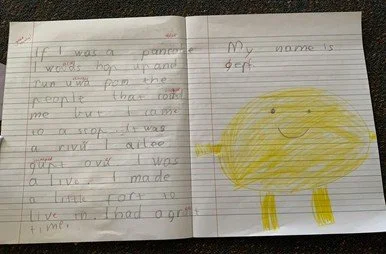 If I was a pancake
I woulds hop up and
run uwa pom the
people that cookt
me but I came
to a stop. It was
a rivu I
gupt ovu I was
a live. I made
a little fort to
live in. I had a grat
time.
My name is